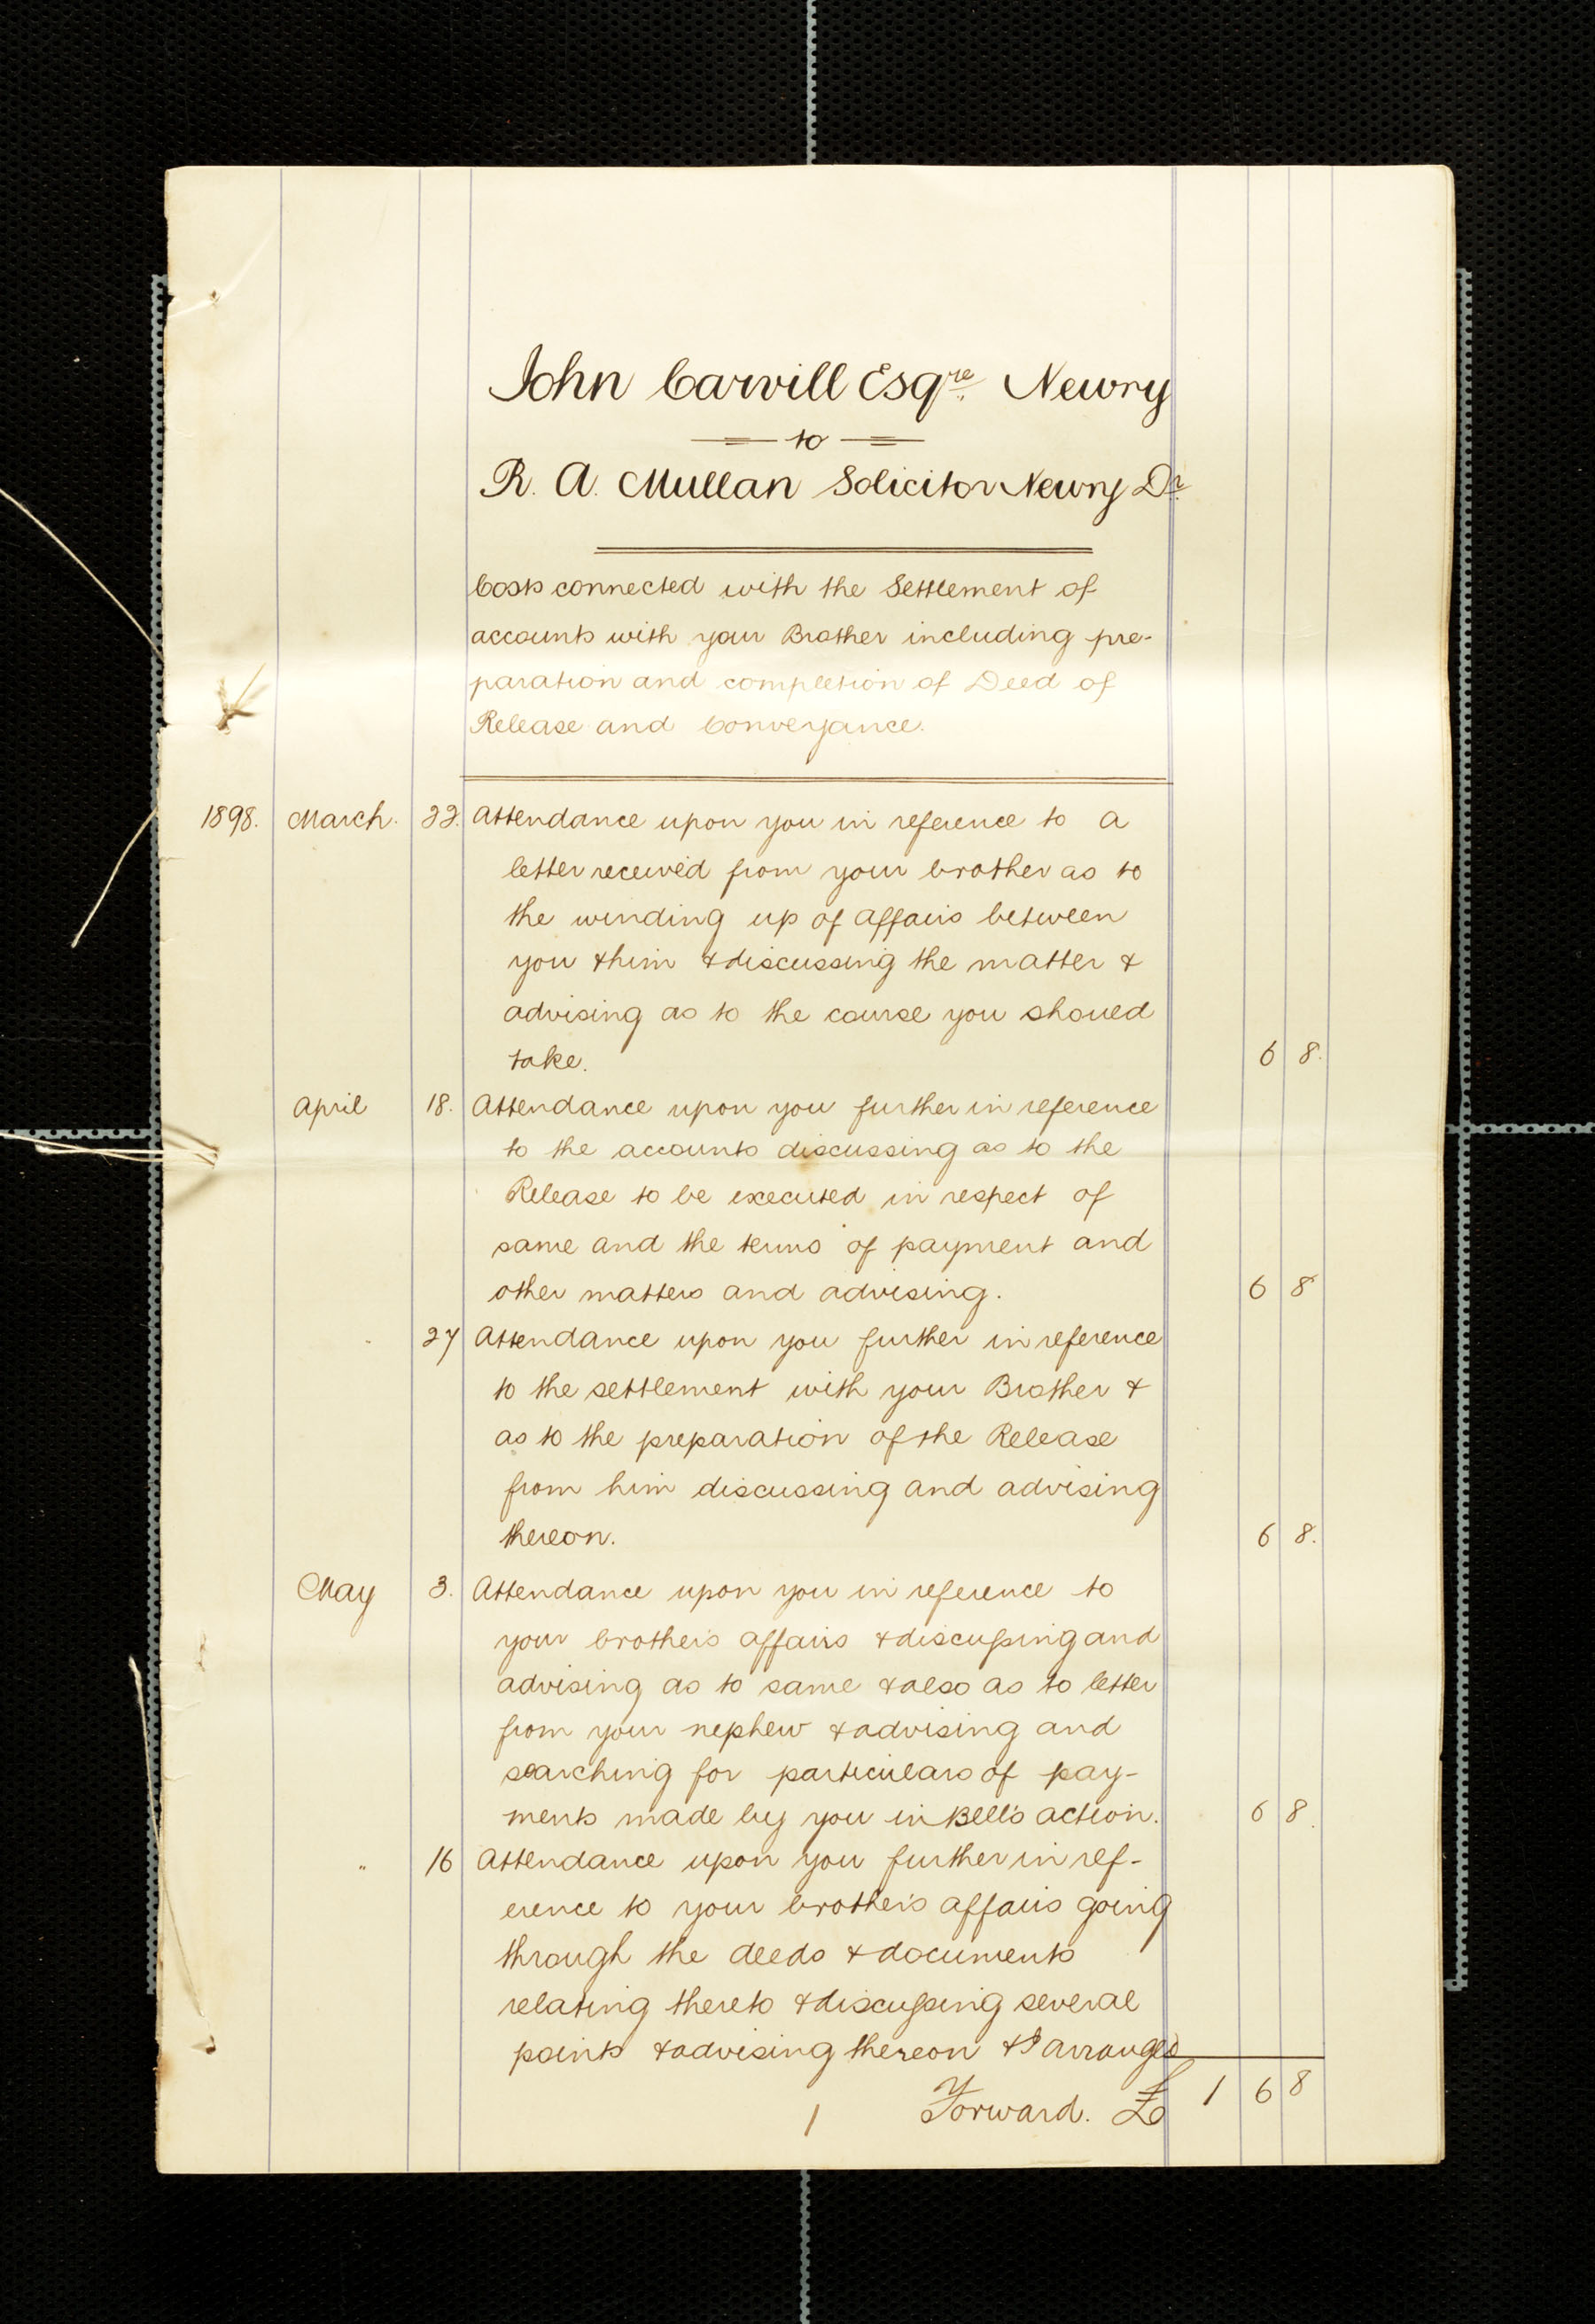 John Carvill Esqre. Newry
to
R. A. Mullan Solicitor Newry Dr.
Costs connected with the Settlement of
accounts with your Brother including pre-
paration and completion of Deed of
Release and Conveyance.
1898. March. 22. Attendance upon you in reference to a
letter received from your brother as to
the winding up of affairs between
you & him & discussing the matter &
advising as to the course you should
take. 6 8.
April 18. Attendance upon you further in reference
to the accounts discussing as to the
Release to be executed in respect of
same and the terms of payment and
other matters and advising. 6 8
" 27 Attendance upon you further in reference
to the settlement with your Brother &
as to the preparation of the Release
from him discussing and advising
thereon. 6 8.
May 3. Attendance upon you in reference to
your brother's affairs & discussing and
advising as to same & also as to letter
from your nephew & advising and
searching for particulars of pay-
ments made by you in Bell's action. 6 8.
" 16 Attendance upon you further in ref-
erence to your brother's affairs going
through the deeds & documents
relating thereto & discussing several
points & advising thereon & I arranged
1 Forward. £ 1 6 8